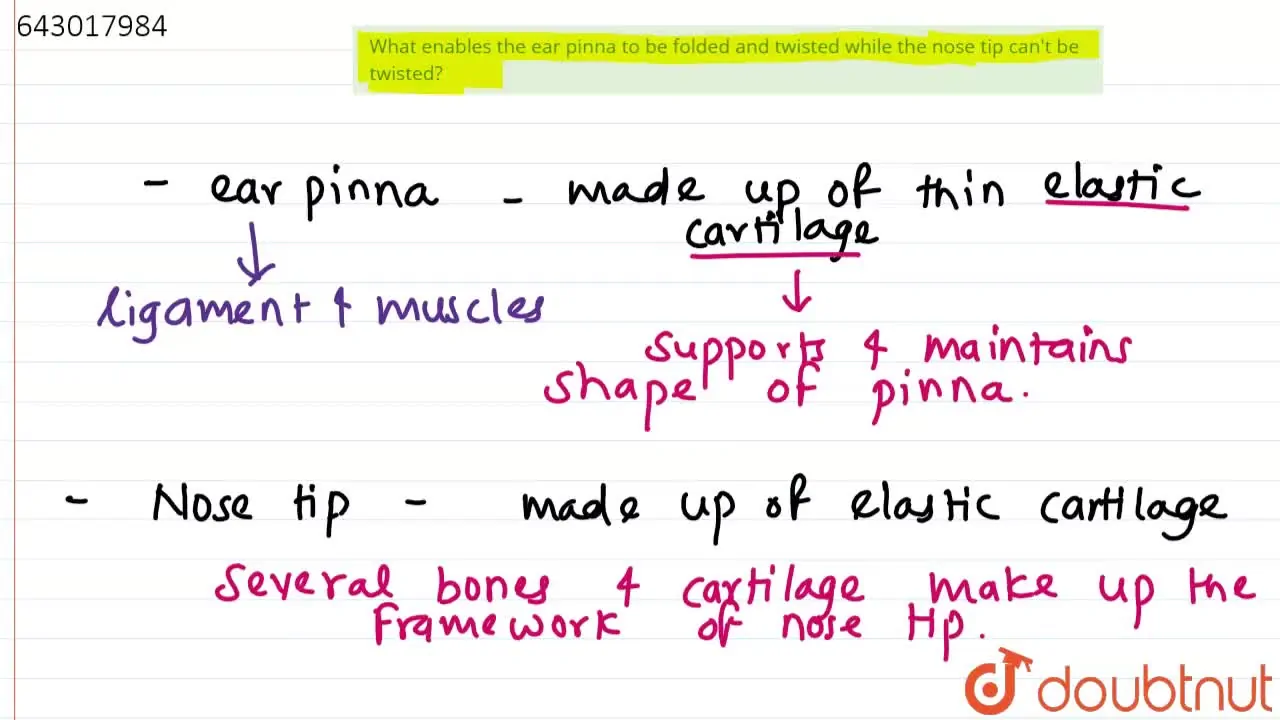 643017984
What enables the ear pinna to be folded and twisted while the nose tip can't be
twisted?
- ear pinna - made up of thin elastic
cartilage
ligament & muscles
supports & maintains
shape of pinna.
- Nose tip - made up of elastic cartilage
Several bones & cartilage make up the
framework of nose tip.
doubtnut